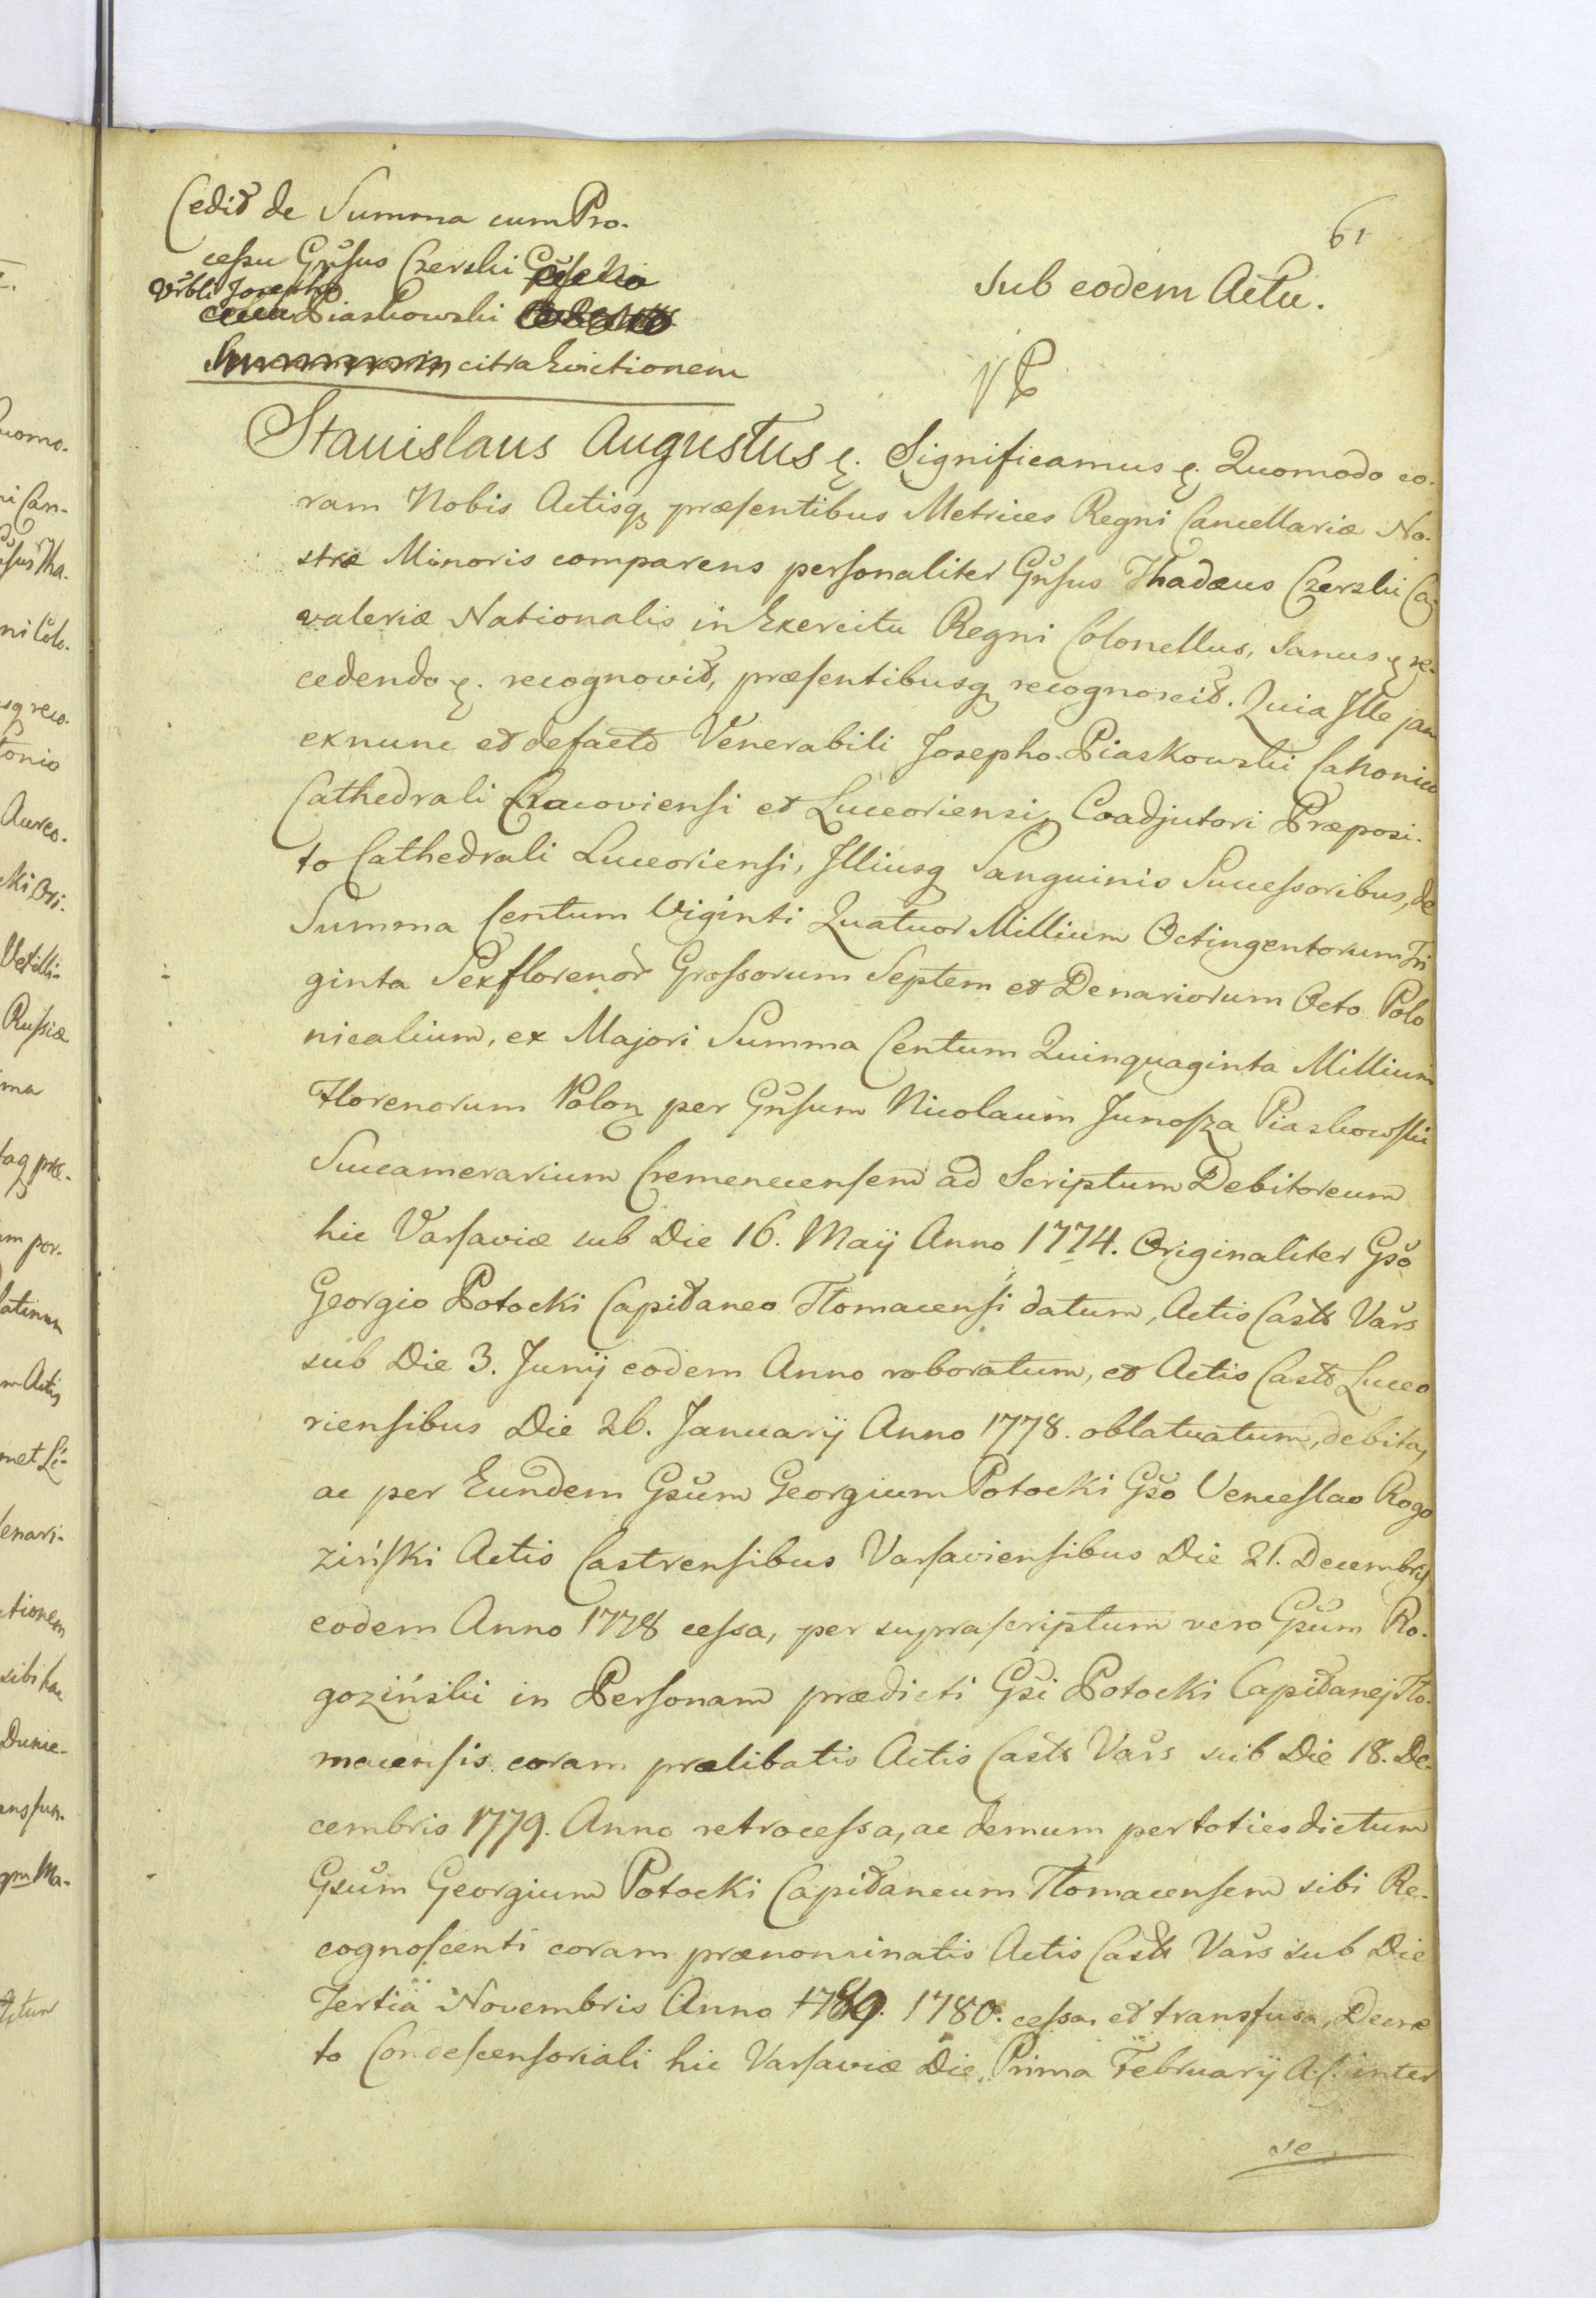 61
Cedit de Summa cum Pro-
cessu Gnŝus Czerski
Vrbli Josepho
Piaskowski
citra Evictionem
Sub eodem Actu.
Stanislaus Augustus &. Significamus &. Quomodo co-
ram Nobis Actisq præsentibus Metrices Regni Cancellariæ No-
stræ Minoris comparens personaliter Gnŝus Thadæus Czerski Ca-
valeriæ Nationalis in Exercitu Regni Colonellus, Sanus & re-
cedendo &. recognovit, præsentibusq recognoscit. Quia Ille jam
exnunc et defacto Venerabili Josepho Piaskowski Canonico
Cathedrali Cracoviensi et Luceoriensi, Coadjutori Præposi-
to Cathedrali Luceoriensi, Illiusq Sanguinis Successoribus, de
Summa Centum Viginti Quatuor Millium Octingentorum Tri
ginta Sex florenor Grossorum Septem et Denariorum Octo Polo
nicalium, ex Majori Summa Centum Quinquaginta Millium
Florenorum Polon per Gnŝum Nicolaum Junosza Piaskowski
Succamerarium Cremenecensem ad Scriptum Debitoreum
hic Varsaviæ sub Die 16. Maij Anno 1774. Originaliter Gŝo
Georgio Potocki Capitaneo Tlomacensi datum, Actis Castr Varŝ
sub Die 3. Junij eodem Anno roboratum, et Actis Castr Luceo
riensibus Die 26. Januarij Anno 1778. oblatuatum, debita,
ac per Eundem Gŝum Georgium Potocki Gŝo Venceslao Rogo
ziński Actis Castrensibus Varsaviensibus Die 21. Decembris
eodem Anno 1778 cessa, per suprascriptum vero Gŝum Ro-
goziński in Personam prædicti Gŝi Potocki Capitanej Tlo-
macensis coram prælibatis Actis Castr Varŝ sub Die 18. De-
cembris 1779. Anno retrocessa, ac demum per toties dictum
Gŝum Georgium Potocki Capitaneum Tlomacensem sibi Re-
cognoscenti coram prænominatis Actis Castr Varŝ sub Die
Tertia Novembris Anno 1789. 1780. cessa et transfusa, Decre
to Condescensoriali hic Varsaviæ Die Prima Februarij A. S. inter
se